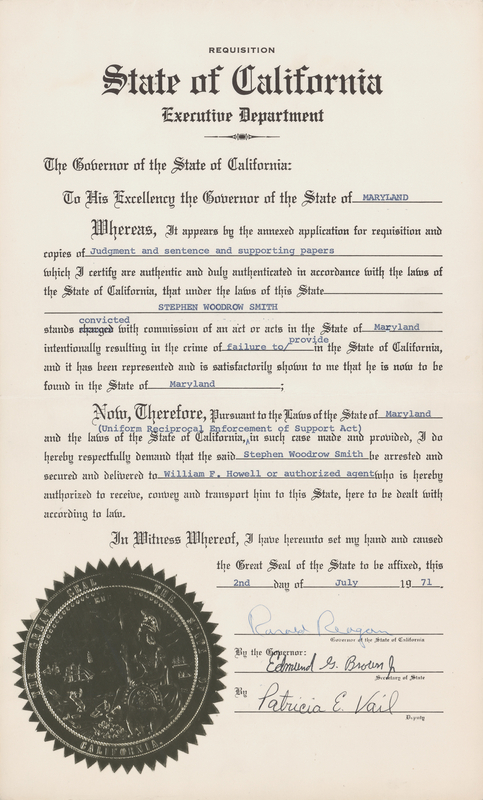 REQUISITION
State of California
Executive Department
The Governor of the State of California:
To His Excellency the Governor of the State of MARYLAND
Whereas, It appears by the annexed application for requisition and
copies of Judgment and sentence and supporting papers
which I certify are authentic and duly authenticated in accordance with the laws of
the State of California, that under the laws of this State
STEPHEN WOODROW SMITH
convicted
stands charged with commission of an act or acts in the State of Maryland
intentionally resulting in the crime of failure to/provide in the State of California,
and it has been represented and is satisfactorily shown to me that he is now to be
found in the State of Maryland ;
Now, Therefore, Pursuant to the Laws of the State of Maryland
(Uniform Reciprocal Enforcement of Support Act)
and the laws of the State of California, in such case made and provided, I do
hereby respectfully demand that the said Stephen Woodrow Smith be arrested and
secured and delivered to William F. Howell or authorized agent who is hereby
authorized to receive, convey and transport him to this State, here to be dealt with
according to law.
In Witness Whereof, I have hereunto set my hand and caused
the Great Seal of the State to be affixed, this
2nd day of July 19 71.
Ronald Reagan
Governor of the State of California
By the Governor:
Edmund G. Brown Jr
Secretary of State
By Patricia E. Vail
Deputy
THE GREAT SEAL OF THE STATE OF
CALIFORNIA.